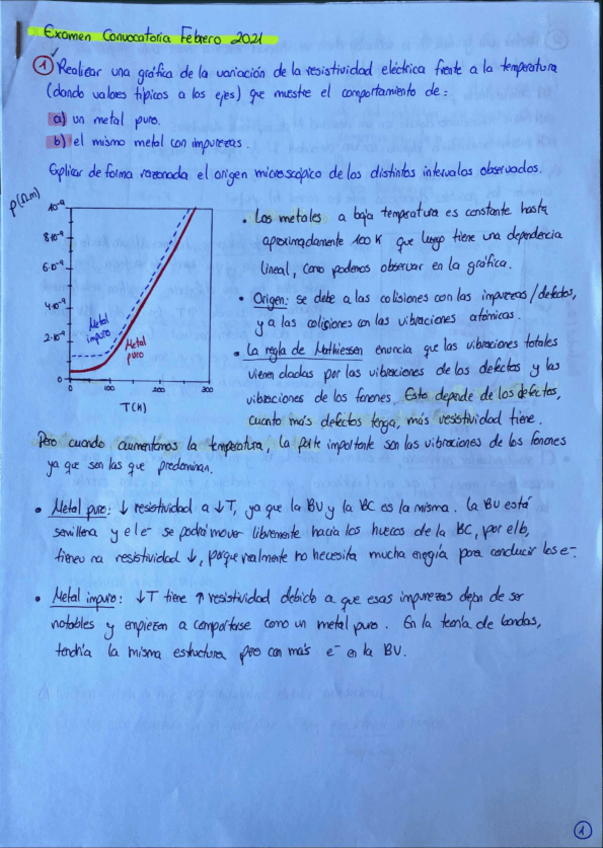 Examen Convocatoria Febrero 2021
① Realizar una gráfica de la variación de la resistividad eléctrica frente a la temperatura
(dando valores típicos a los ejes) que muestre el comportamiento de:
a) un metal puro.
b) el mismo metal con impurezas.
Explicar de forma razonada el origen microscópico de los distintos intervalos observados.
ρ(Ω.m)
8·10⁻⁹
6·10⁻⁹
4·10⁻⁹
2·10⁻⁹
0
0 100 200 300
T(K)
Metal impuro
Metal puro
• Los metales a baja temperatura es constante hasta
aproximadamente 100 K que luego tiene una dependencia
lineal, como podemos observar en la gráfica.
• Origen: se debe a las colisiones con las impurezas/defectos,
y a las colisiones con las vibraciones atómicas.
• La regla de Mathiessen enuncia que las vibraciones totales
vienen dadas por las vibraciones de los defectos y las
vibraciones de los fonones. Esto depende de los defectos,
cuanto más defectos tenga, más resistividad tiene.
Pero cuando aumentamos la temperatura, la parte importante son las vibraciones de los fonones
ya que son las que predominan.
• Metal puro: ↓ resistividad a ↓T, ya que la BV y la BC es la misma. La BV está
semillena y el e⁻ se podrá mover libremente hacia los huecos de la BC, por ello,
tienen una resistividad ↓, porque realmente no necesita mucha energía para conducir los e⁻.
• Metal impuro: ↓T tiene ↑ resistividad debido a que esas impurezas dejan de ser
notables y empiezan a comportarse como un metal puro. En la teoría de bandas,
tendría la misma estructura pero con más e⁻ en la BV.
1